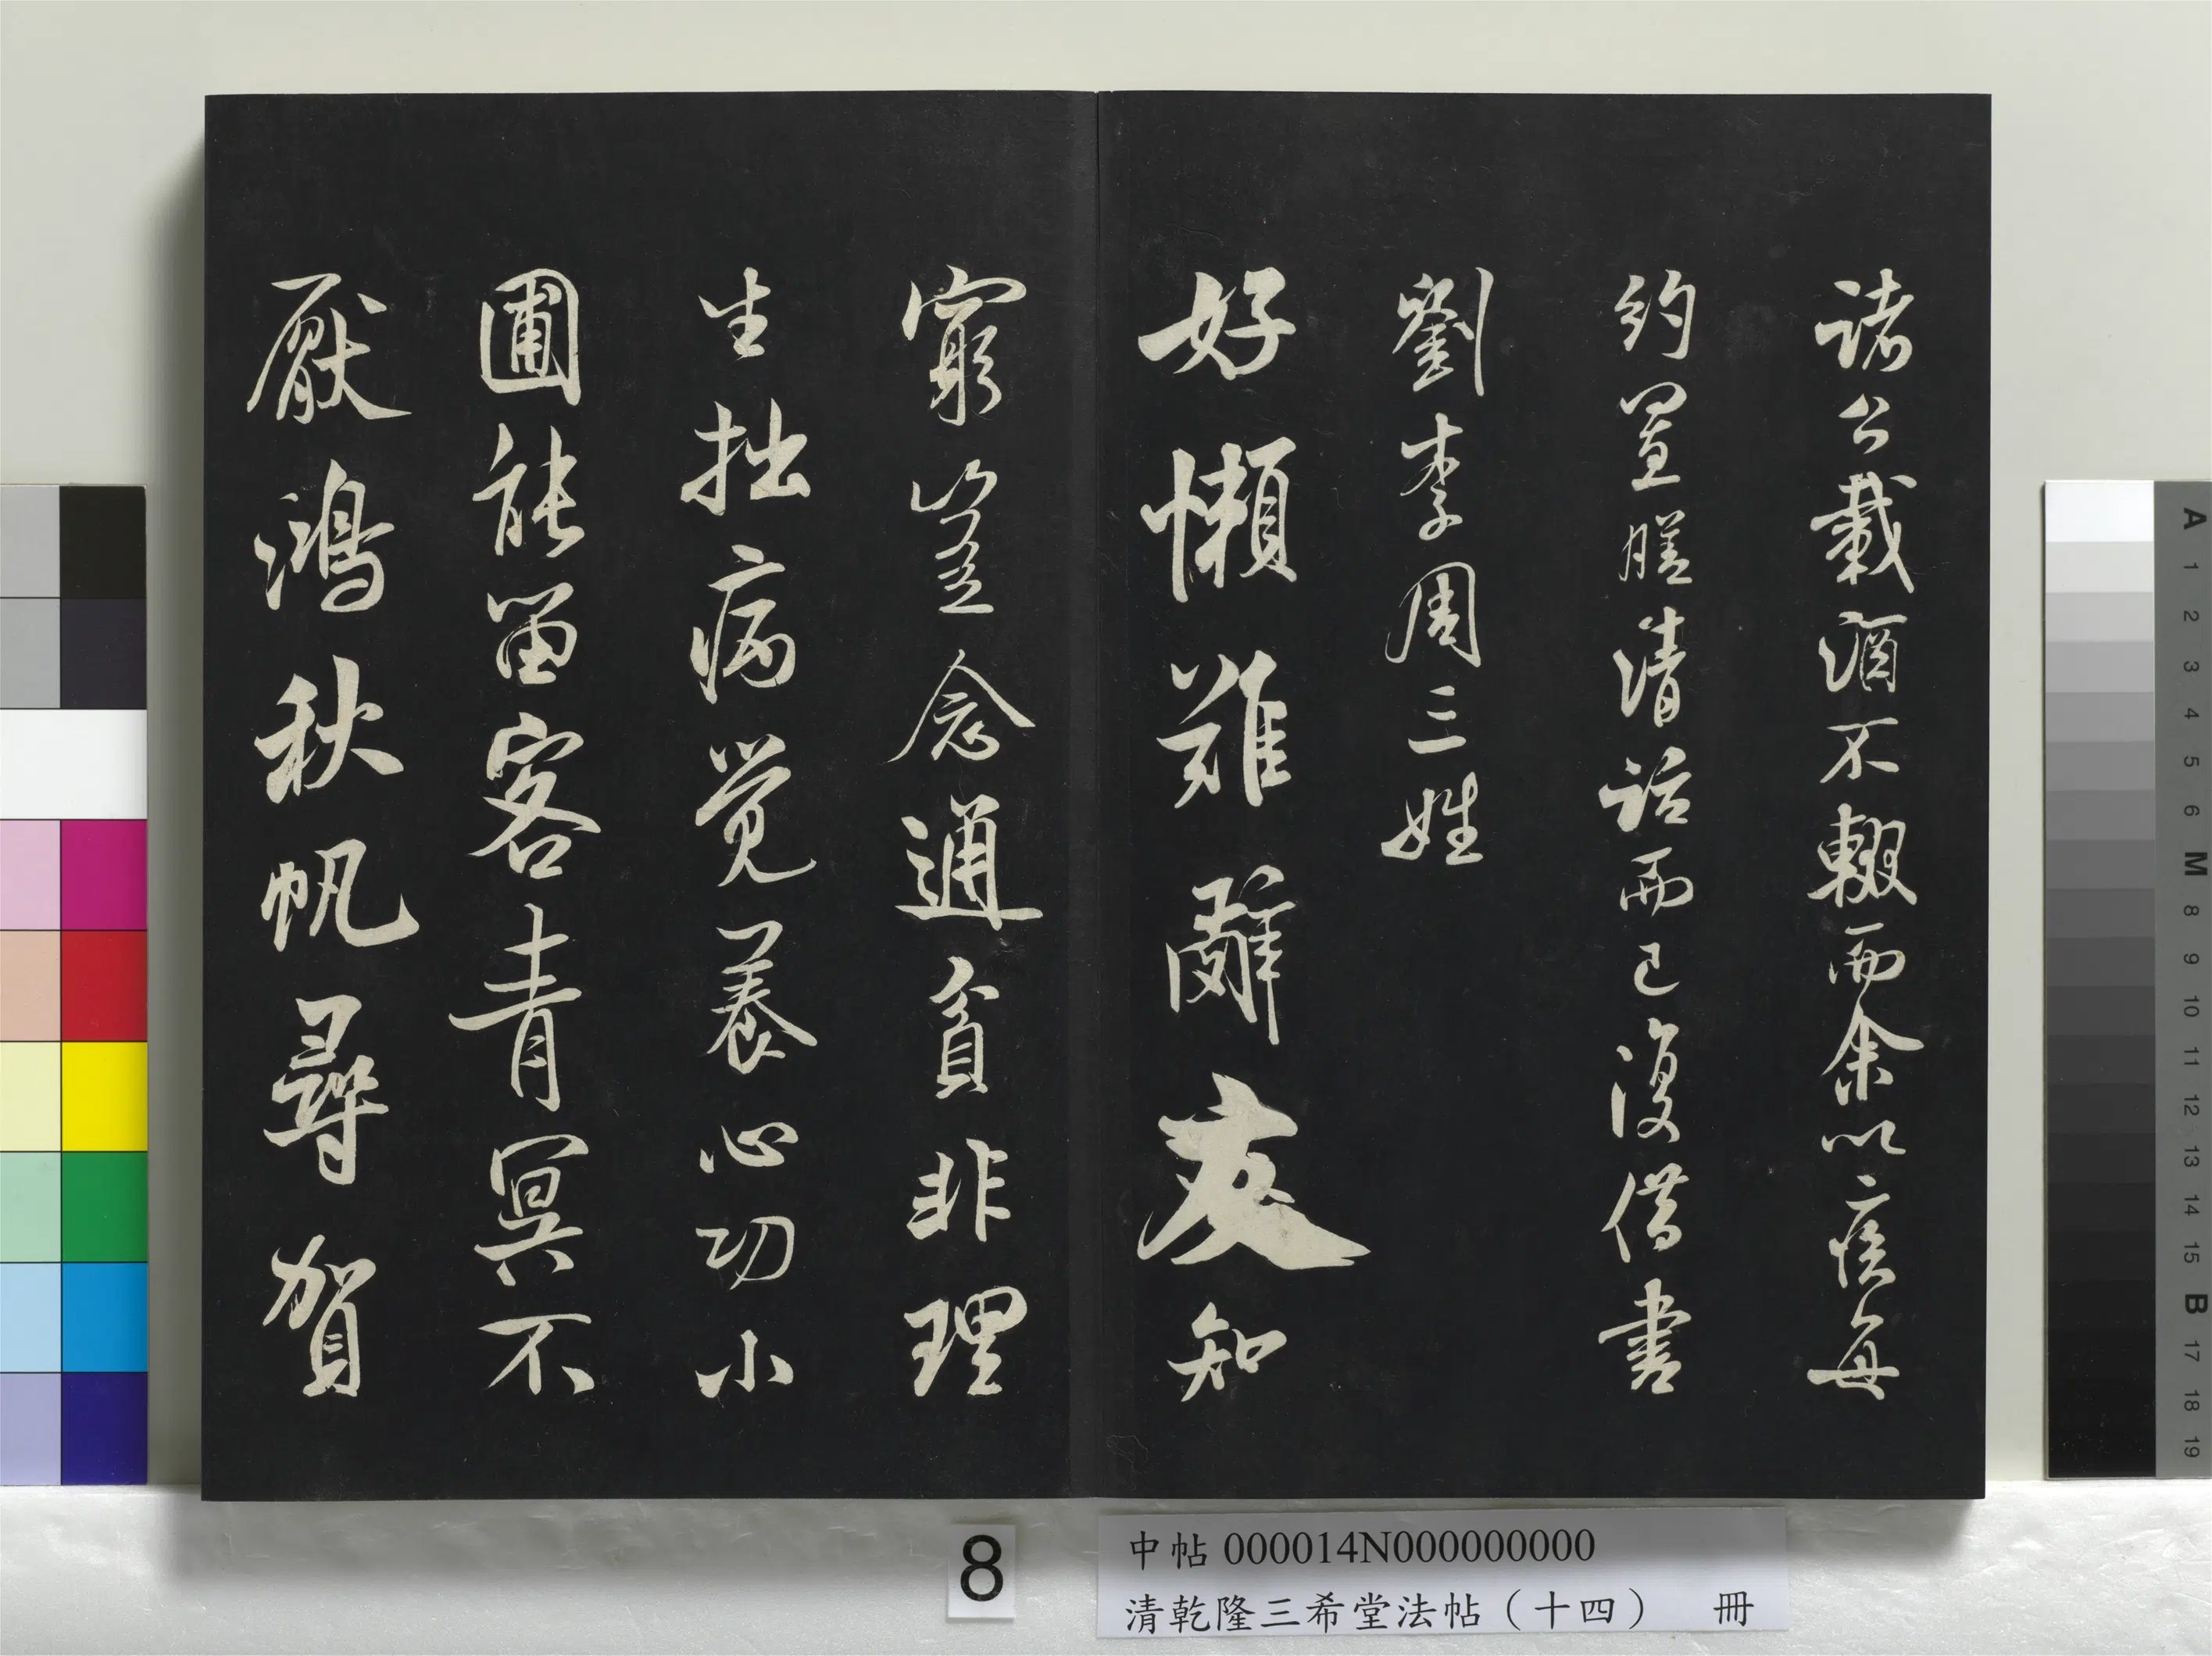 諸公載酒不輟而余以疾每
約置膳清話而已復借書
劉李周三姓
好懶難辭友知
窮豈念通貧非理
生拙病覺養心功小
圃能留客青冥不
厭鴻秋帆尋賀
8
中帖 000014N000000000
清乾隆三希堂法帖（十四） 冊
A 1 2 3 4 5 6 M 8 9 10 11 12 13 14 15 B 17 18 19